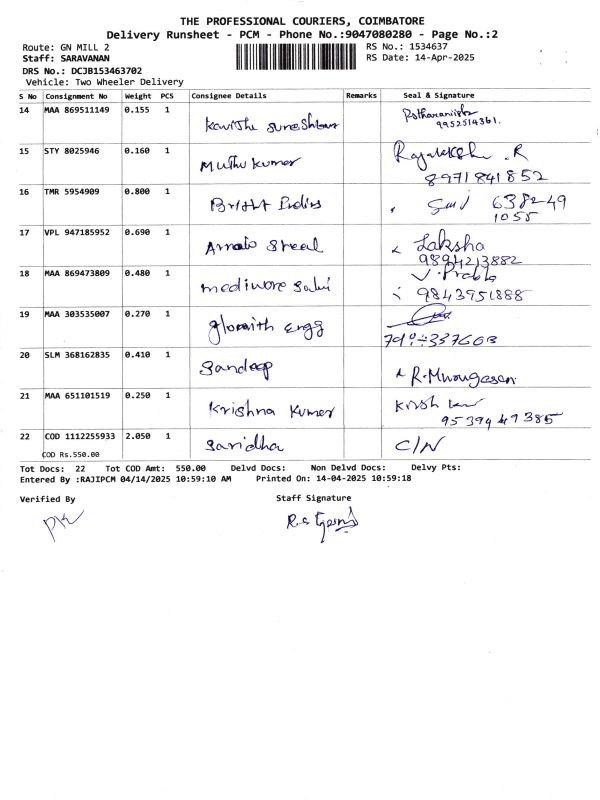 THE PROFESSIONAL COURIERS, COIMBATORE
Delivery Runsheet - PCM - Phone No.:9047080280 - Page No.:2
Route: GN MILL 2 RS No.: 1534637
Staff: SARAVANAN RS Date: 14-Apr-2025
DRS No.: DCJB153463702
Vehicle: Two Wheeler Delivery
S No Consignment No Weight PCS Consignee Details Remarks Seal & Signature
14 MAA 869511149 0.155 1 9952514361.
15 STY 8025946 0.160 1 Muthu Kumar R
8971841852
16 TMR 5954909 0.800 1 Bright 638249
1055
17 VPL 947185952 0.690 1 Laksha
9894213882
18 MAA 869473809 0.480 1 V. 
9843951888
19 MAA 303535007 0.270 1 Engg
20 SLM 368162835 0.410 1 Sandeep
21 MAA 651101519 0.250 1 Krishna Kumar
9539449385
22 COD 1112255933 2.050 1 Saridha C/N
COD Rs.550.00
Tot Docs: 22 Tot COD Amt: 550.00 Delvd Docs: Non Delvd Docs: Delvy Pts:
Entered By :RAJIPCM 04/14/2025 10:59:10 AM Printed On: 14-04-2025 10:59:18
Verified By Staff Signature